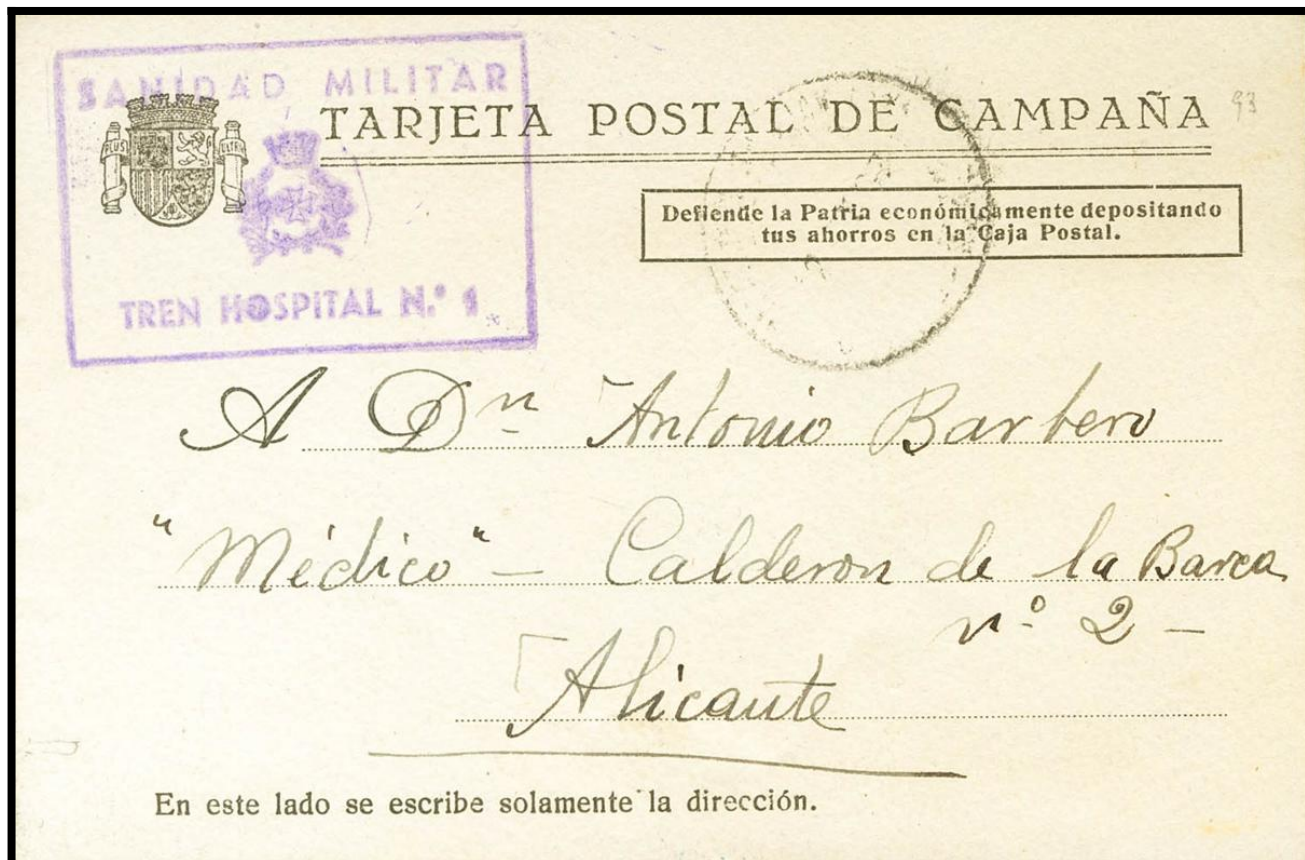 SANIDAD MILITAR
PLUS ULTRA
TARJETA POSTAL DE CAMPAÑA
93
Defiende la Patria económicamente depositando
tus ahorros en la Caja Postal.
TREN HOSPITAL N.º 1
A Dn Antonio Barbero
"Médico" - Calderon de la Barca
nº 2 -
Alicante
En este lado se escribe solamente la dirección.